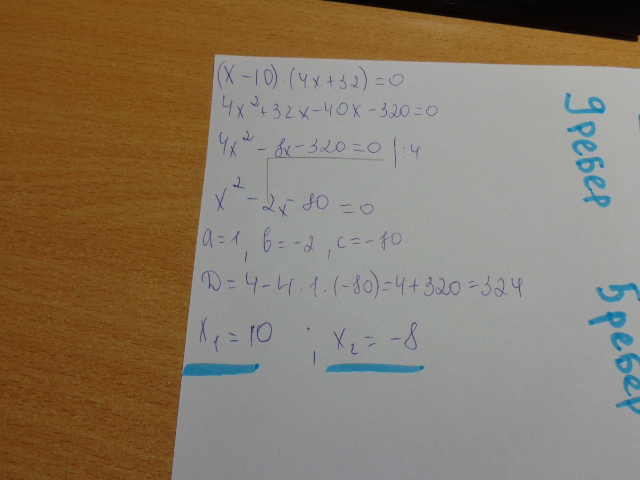 (x-10)·(4x+32)=0
4x²+32x-40x-320=0
4x²-8x-320=0 |:4
x²-2x-80=0
a=1, b=-2, c=-80
D=4-4·1·(-80)=4+320=324
x₁=10 ; x₂=-8
9 ребер
5 ребер